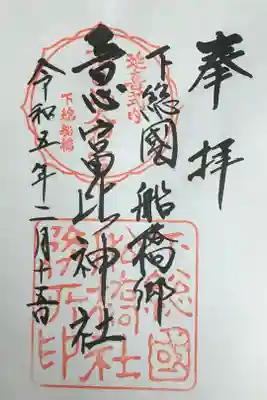 奉拝
下總國 船橋郷
意富比神社
令和五年二月十五日
延喜式内
下總船橋